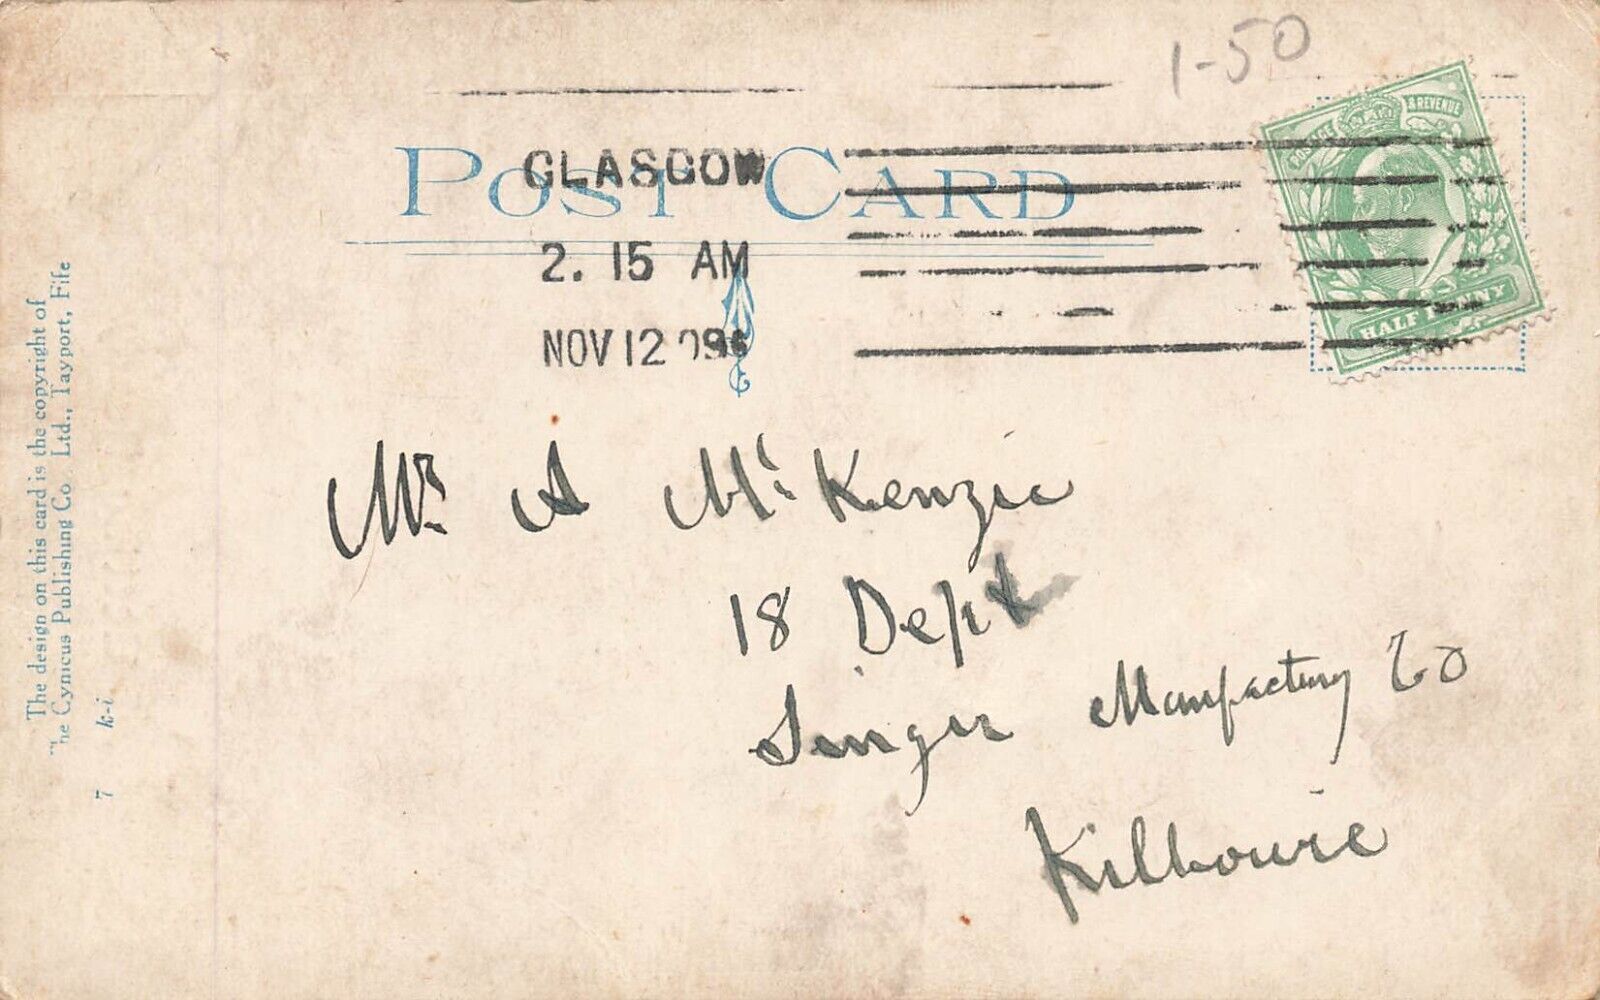 1-50
POSTAGE & REVENUE
HALF PENNY
POST CARD
GLASGOW
2. 15 AM
NOV 12 09
Mr. A McKenzie
18 Dept
Singer Manufacturing Co
Kilbowie
The design on this card is the copyright of
The Cynicus Publishing Co. Ltd., Tayport, Fife
7 k-i